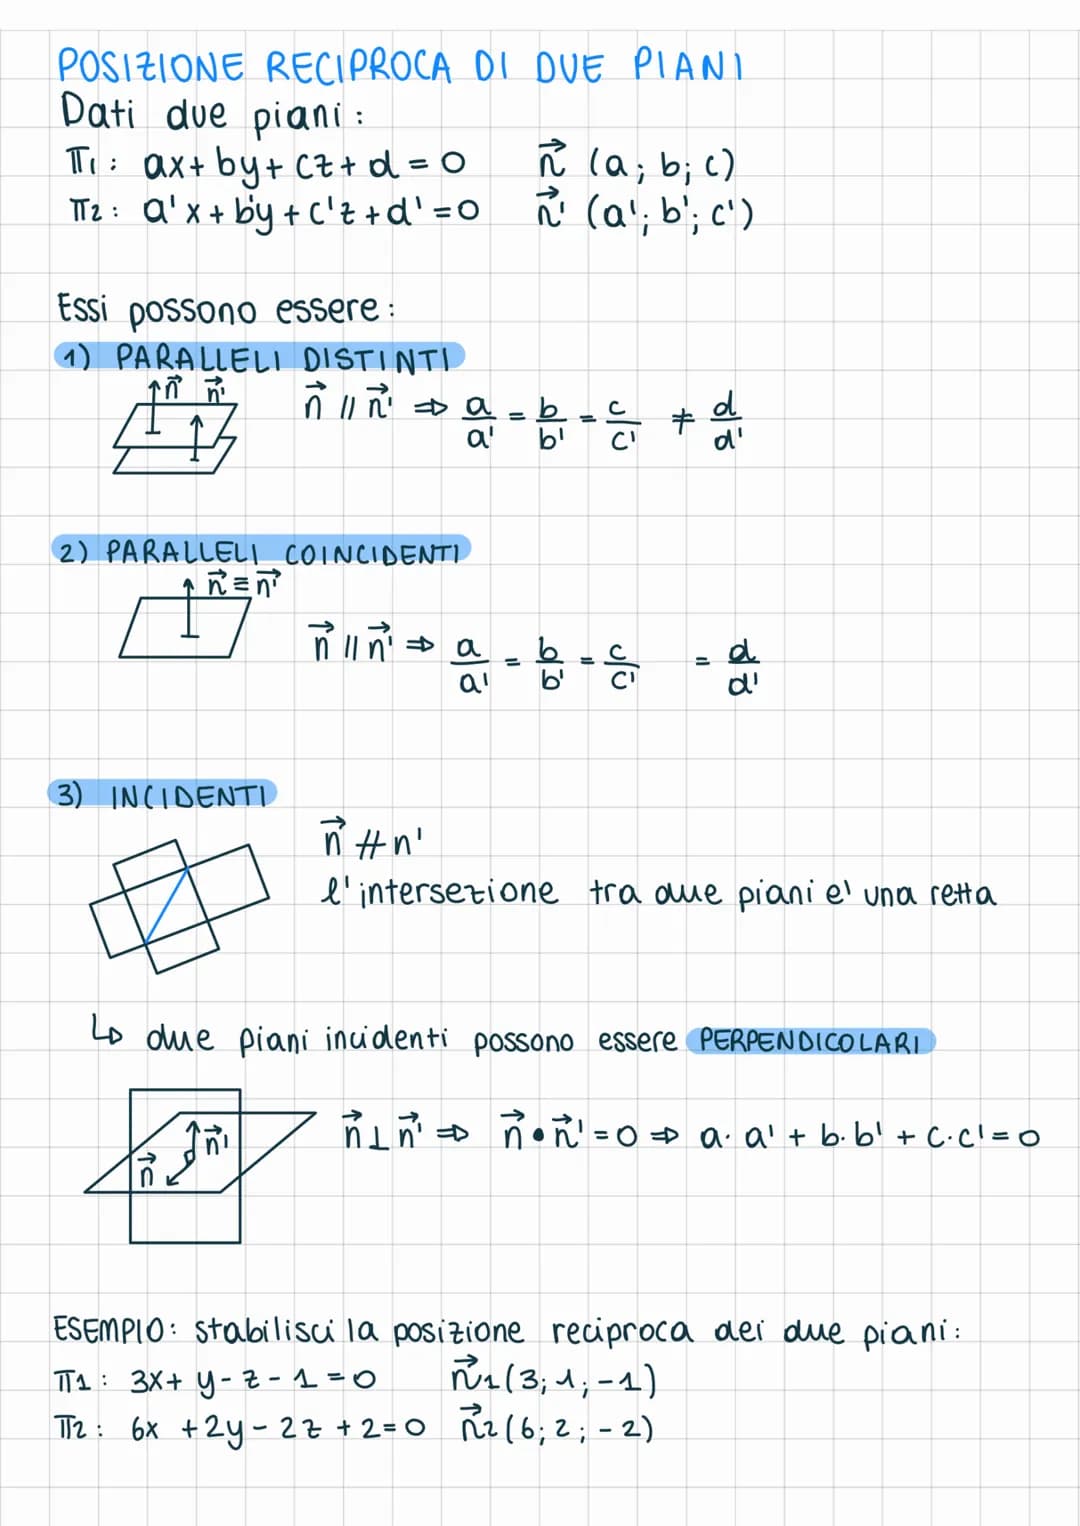 POSIZIONE RECIPROCA DI DUE PIANI
Dati due piani:
π1: ax+by+cz+d=0 n⃗ (a; b; c)
π2: a'x+b'y+c'z+d'=0 n⃗' (a'; b'; c')
Essi possono essere:
1) PARALLELI DISTINTI
n⃗ n⃗'
n⃗ // n⃗' ⇒ a/a' = b/b' = c/c' ≠ d/d'
2) PARALLELI COINCIDENTI
n⃗≡n⃗'
n⃗ // n⃗' ⇒ a/a' = b/b' = c/c' = d/d'
3) INCIDENTI
n⃗ ∦ n'
l'intersezione tra due piani e' una retta
↳ due piani incidenti possono essere PERPENDICOLARI
n⃗ n⃗'
n⃗ ⊥ n⃗' ⇒ n⃗ • n⃗' = 0 ⇒ a·a' + b·b' + c·c' = 0
ESEMPIO: stabilisci la posizione reciproca dei due piani:
π1: 3x+y-z-1=0 n⃗1(3; 1; -1)
π2: 6x+2y-2z+2=0 n⃗2(6; 2; -2)